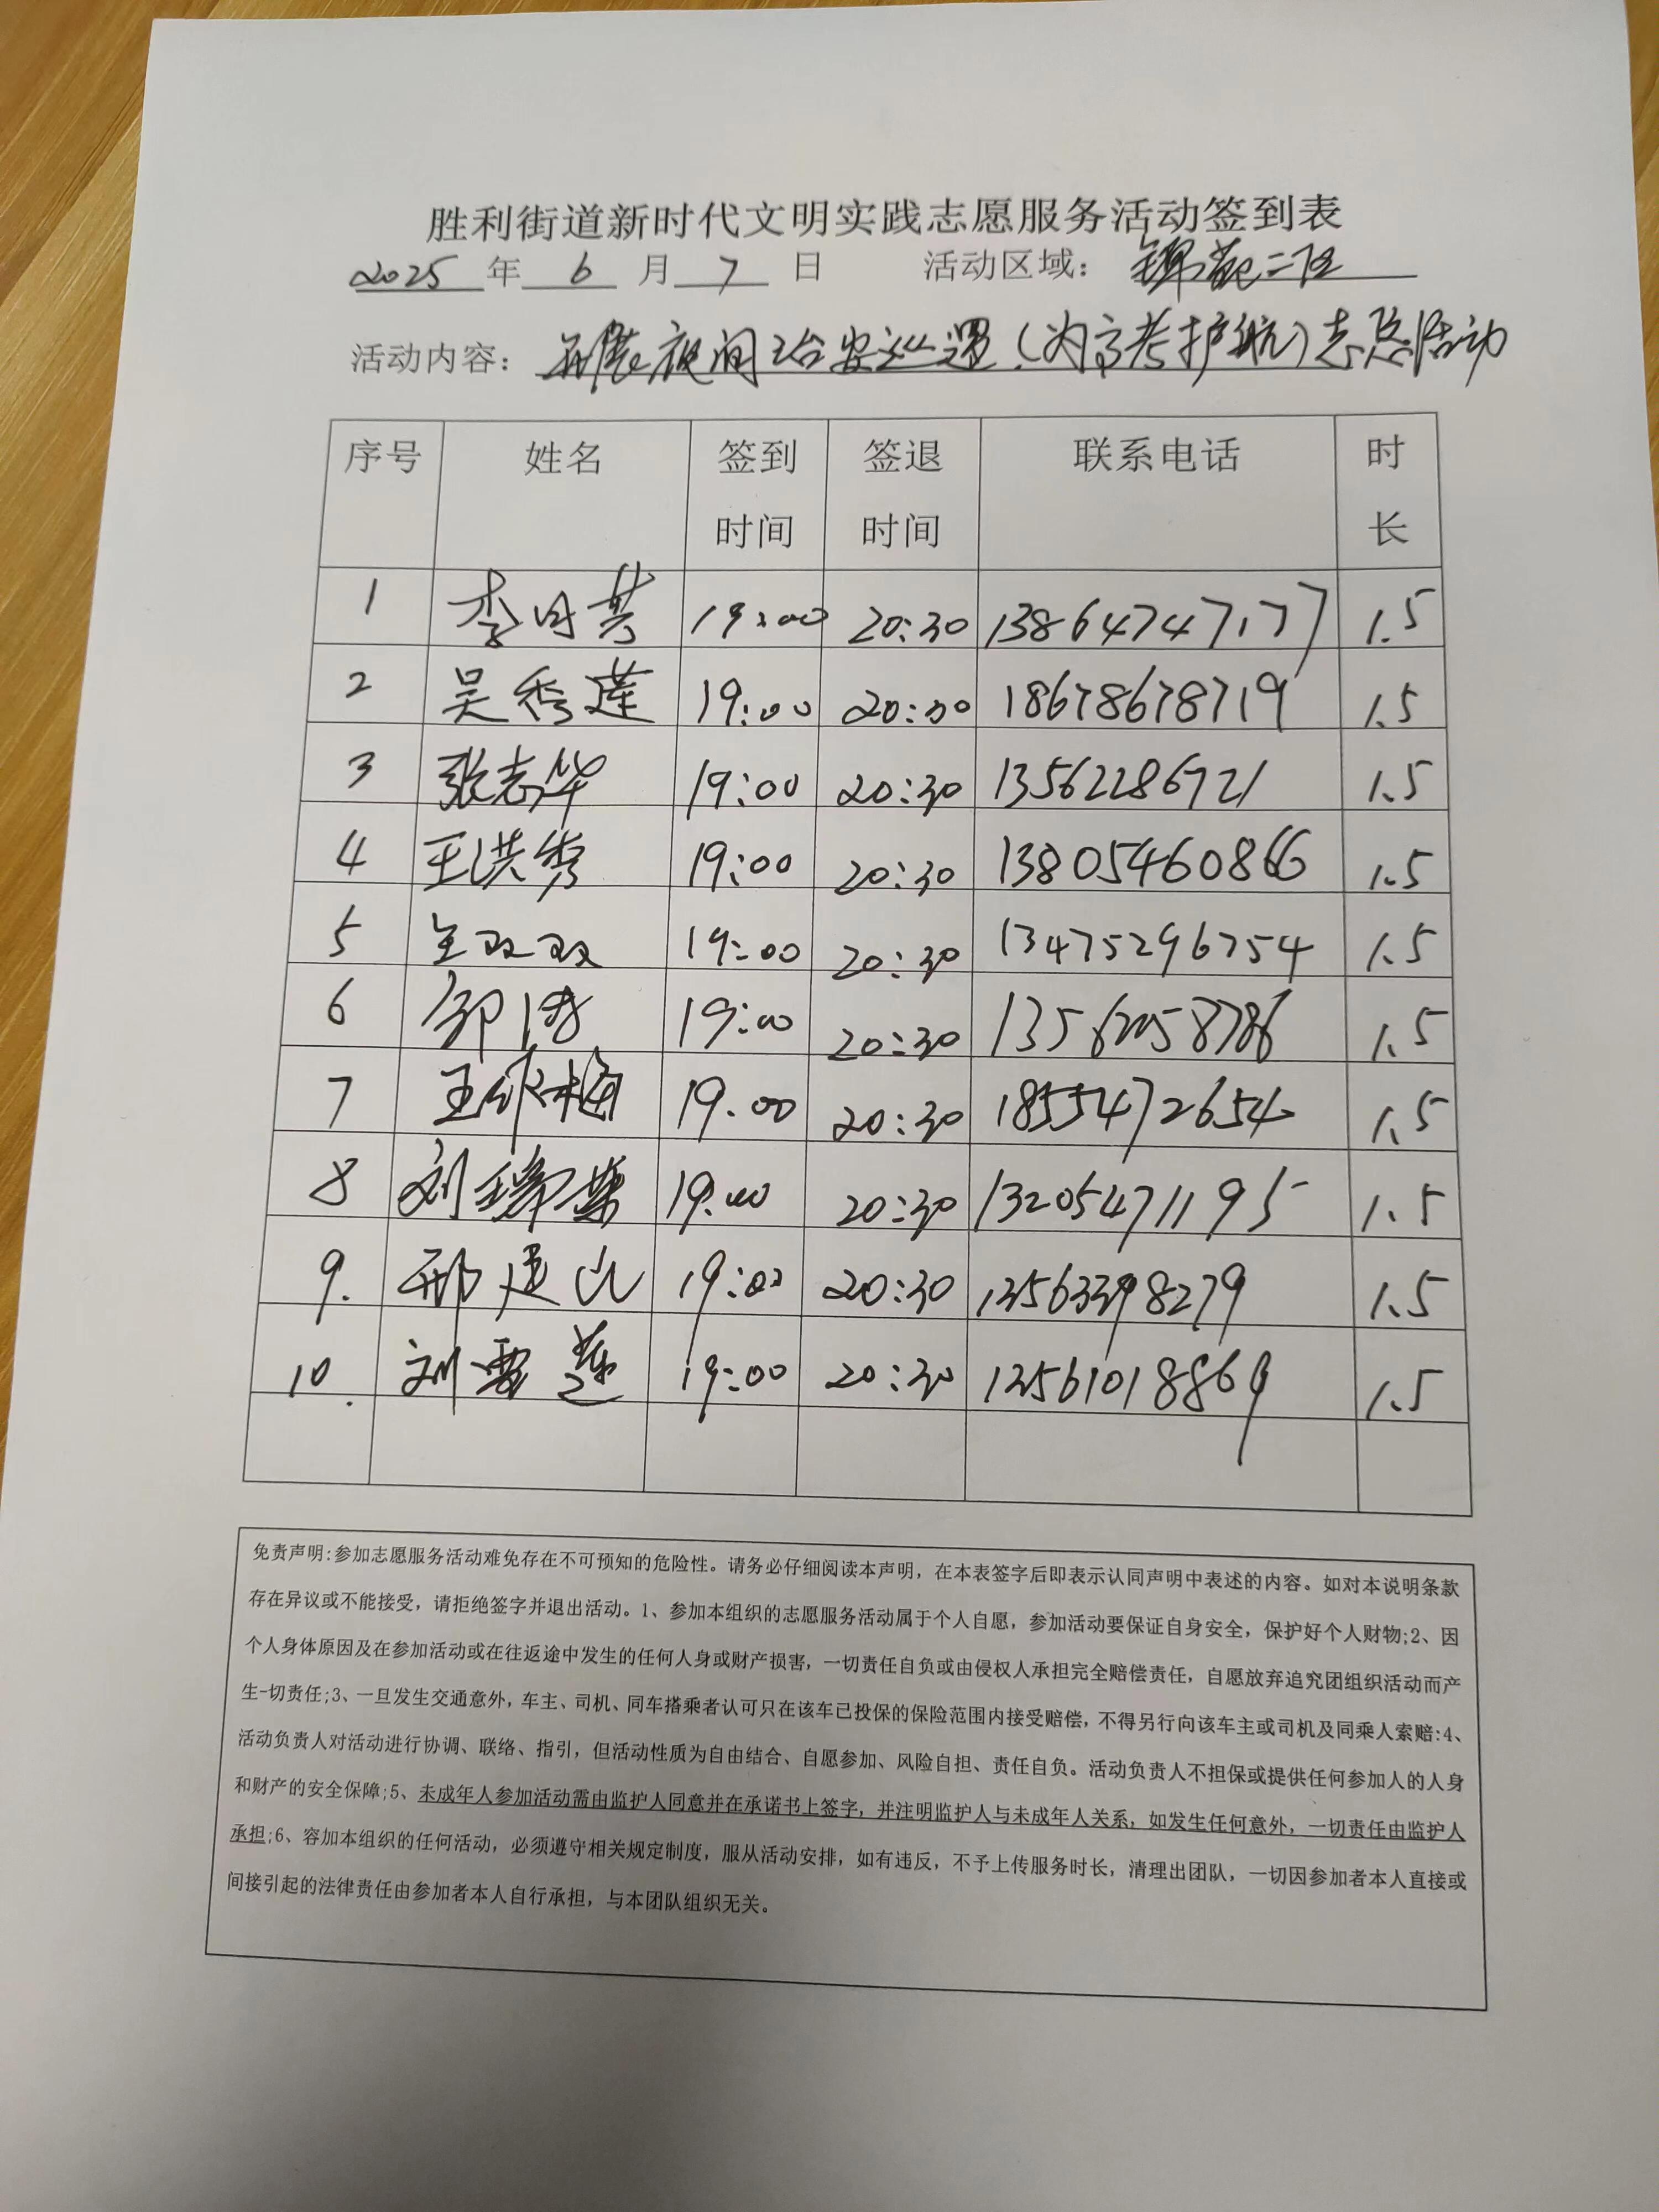 胜利街道新时代文明实践志愿服务活动签到表
2025 年 6 月 7 日 活动区域: 锦苑二区
活动内容: 开展夜间治安巡逻(为高考护航)志愿活动
序号 姓名 签到时间 签退时间 联系电话 时长
1 李月芳 19:00 20:30 13864747177 1.5
2 吴秀莲 19:00 20:30 18678678719 1.5
3 张志华 19:00 20:30 13562286721 1.5
4 王洪秀 19:00 20:30 13805460866 1.5
5 王双双 19:00 20:30 13475296754 1.5
6 邹 19:00 20:30 13562058786 1.5
7 王 梅 19:00 20:30 1855472654 1.5
8 刘瑞 19:00 20:30 13205471195 1.5
9. 邢建山 19:00 20:30 13563398279 1.5
10. 刘雪莲 19:00 20:30 13561018869 1.5
免责声明:参加志愿服务活动难免存在不可预知的危险性。请务必仔细阅读本声明，在本表签字后即表示认同声明中表述的内容。如对本说明条款
存在异议或不能接受，请拒绝签字并退出活动。1、参加本组织的志愿服务活动属于个人自愿，参加活动要保证自身安全，保护好个人财物;2、因
个人身体原因及在参加活动或在往返途中发生的任何人身或财产损害，一切责任自负或由侵权人承担完全赔偿责任，自愿放弃追究团组织活动而产
生-切责任;3、一旦发生交通意外，车主、司机、同车搭乘者认可只在该车已投保的保险范围内接受赔偿，不得另行向该车主或司机及同乘人索赔:4、
活动负责人对活动进行协调、联络、指引，但活动性质为自由结合、自愿参加、风险自担、责任自负。活动负责人不担保或提供任何参加人的人身
和财产的安全保障;5、未成年人参加活动需由监护人同意并在承诺书上签字，并注明监护人与未成年人关系，如发生任何意外，一切责任由监护人
承担;6、容加本组织的任何活动，必须遵守相关规定制度，服从活动安排，如有违反，不予上传服务时长，清理出团队，一切因参加者本人直接或
间接引起的法律责任由参加者本人自行承担，与本团队组织无关。